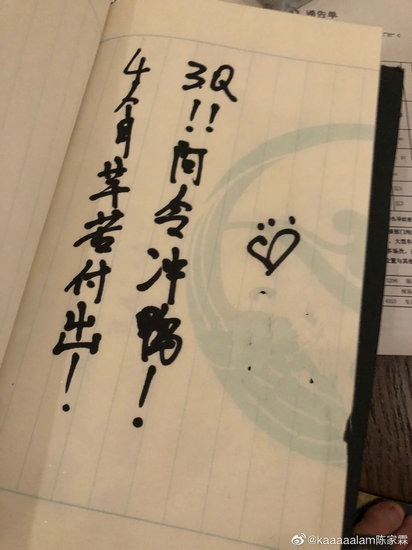 3Q!!阿令冲鸭!
4个月莘苦付出!
通告单
@kaaaaalam陈家霖